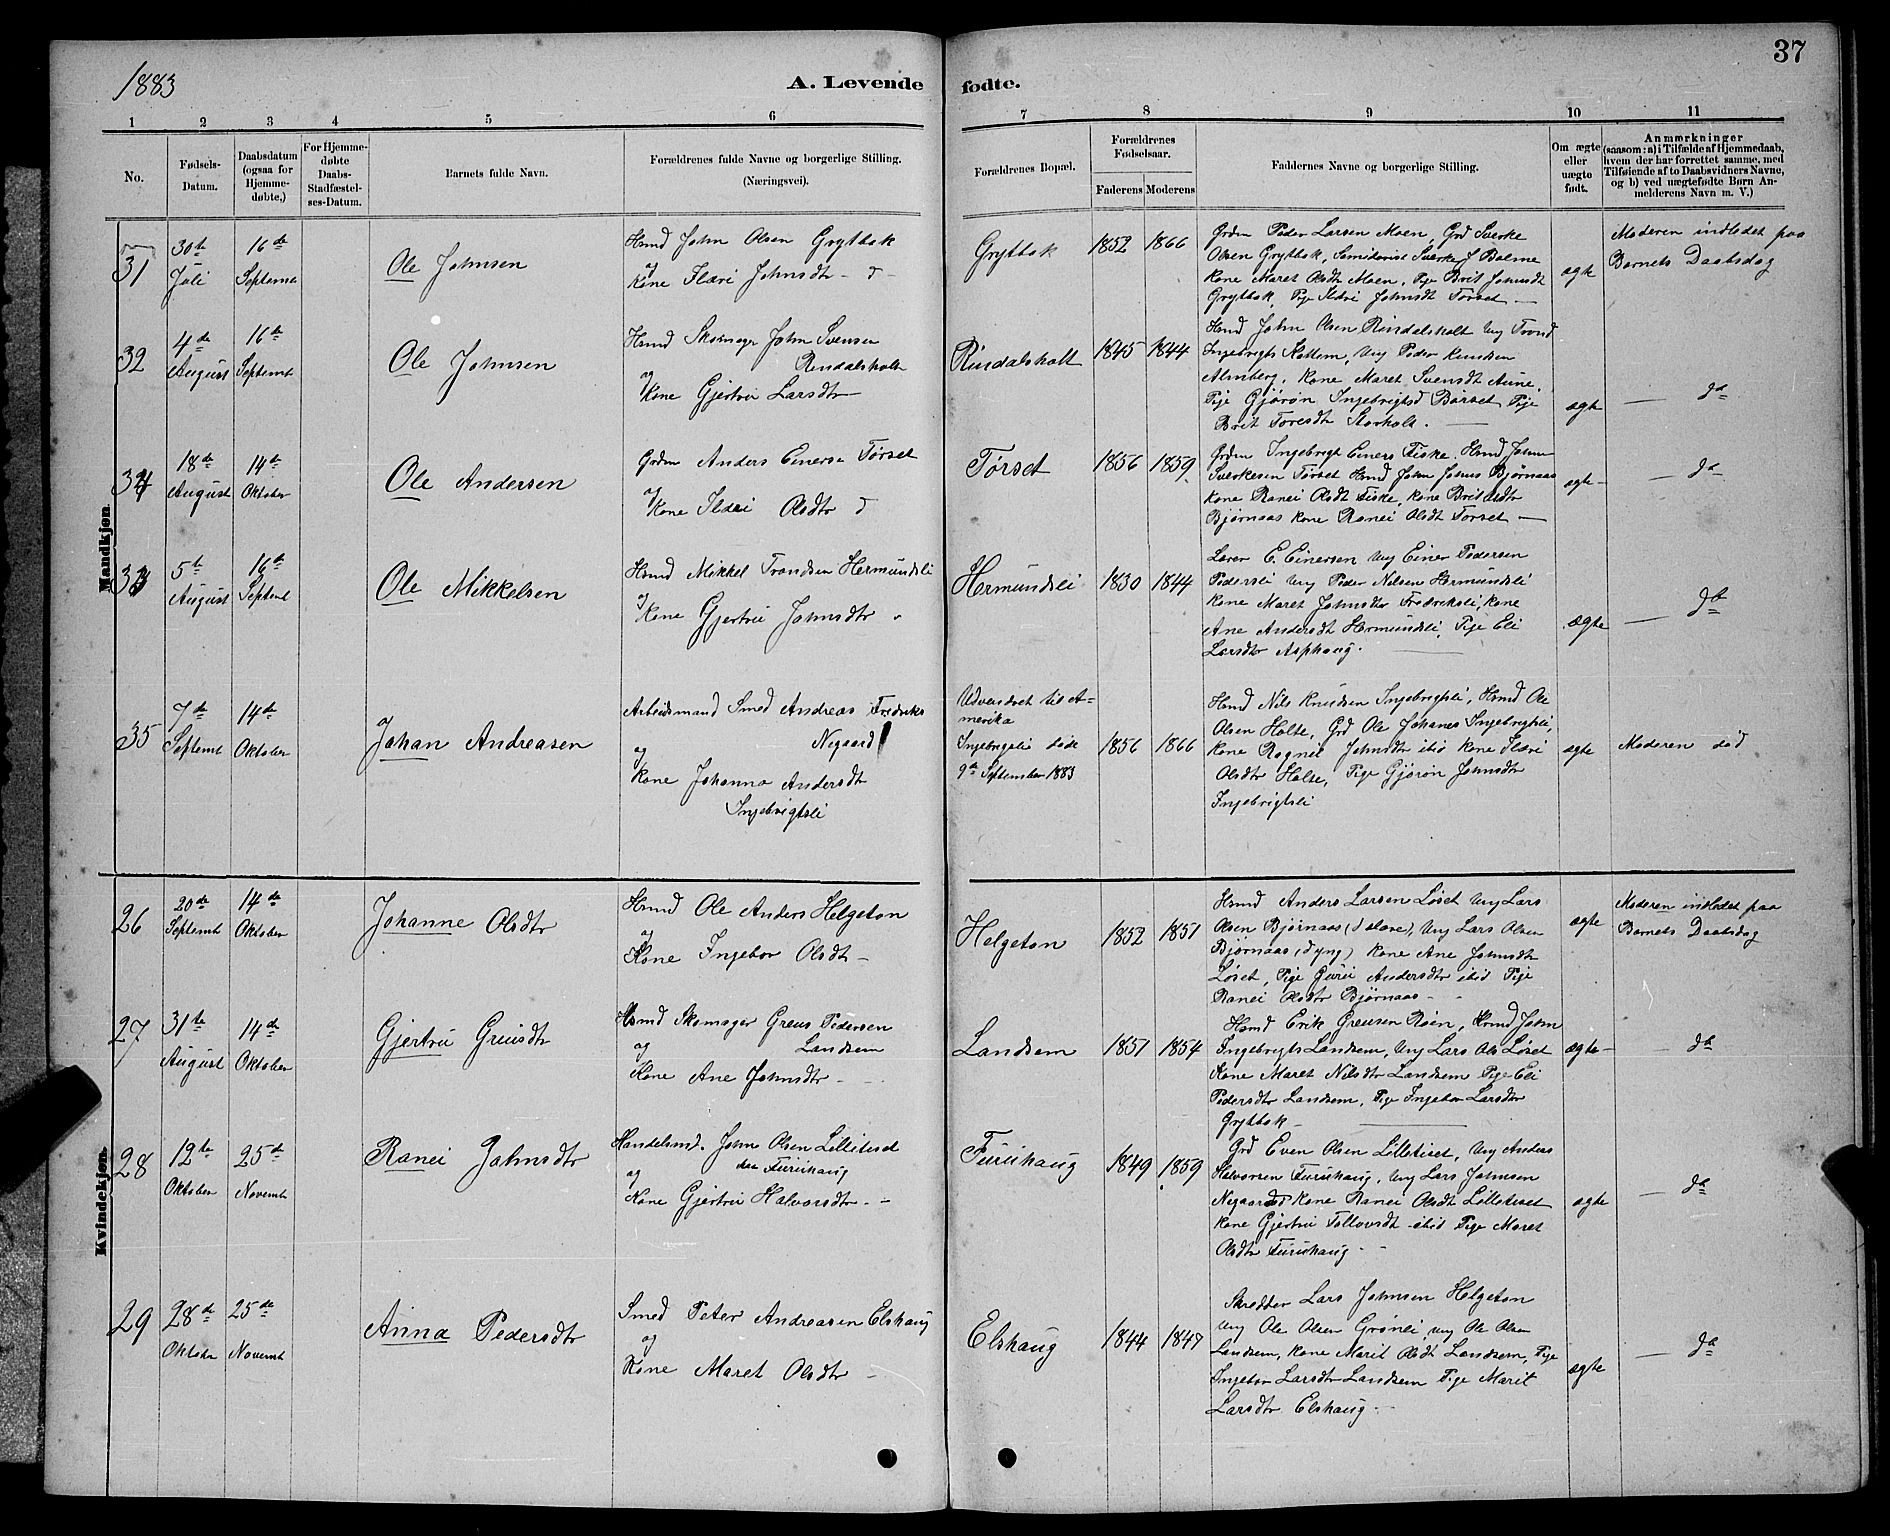 1883
A. Levende fødte.
37
1 2 3 4 5 6 7 8 9 10 11
No.
Fødsels-Datum.
Daabsdatum (ogsaa for Hjemme-døbte,)
For Hjemme-døbte Daabs-Stadfæstel-ses-Datum.
Barnets fulde Navn.
Forældrenes fulde Navne og borgerlige Stilling. (Næringsvei).
Forældrenes Bopæl.
Forældrenes Fødselsaar.
Faderens Moderens
Faddernes Navne og borgerlige Stilling.
Om ægte eller uægte født.
Anmærkninger
(saasom: a) i Tilfælde af Hjemmedaab,
hvem der har forrettet samme, med
Tilføiende af to Daabsvidners Navne,
og b) ved uægtefødte Børn An-
melderens Navn m. V.)
Mandkjøn.
31
30te Juli
16de Septemb
Ole Johnsen
Hsmd John Olsen Grytbak
og
Kone Ildri Johnsdtr - d
Grytbak
1852 1866
Grdm Peder Larsen Moen, Grd Sverke
Olsen Grytbak, Sverke J Bolme
Kone Maret Olsdtr Moen, Pige Brit Johnsdt
Grytbak, Pige Ildri Johnsdt Torset
ægte
Moderen indledet paa
Barnets Daabsdag
32
4de August
16de Septemb
Ole Johnsen
Hsmd Skomager John Svensen
Rindalsholt
og
Kone Gjertru Larsdtr
Rindalsholt
1845 1844
Hsmd John Olsen Rindalsholt Ung Trond
Ingebrigts Kattem, Ung Peder Knudsen
Almberg, Kone Maret Svensdt Aune,
Pige Gjørøn Ingebrigtsd Børset Pige
Brit Toresdt Storholt.
ægte
do
34
18de August
14de Oktober
Ole Andersen
Grdm Anders Einersn Tørset
og
Kone Ildri Olsdtr d
Tørset
1856 1859
Grdm Ingebrigt Einers Fiske, Hsmd John
Sverkesen Tørset Hsmd John Johns Bjørnaas
Kone Ranei Olsdt Fiske, Kone Brit Olsdtr
Bjørnaas Kone Ranei Olsdt Torset
ægte
do
33
5te August
16de Septemb
Ole Mikkelsen
Hsmd Mikkel Trondsen Hermundsli
og
Kone Gjertru Johnsdtr
Hermundsli
1830 1844
Lærer E. Einersen Ung Einer Pedersen
Pedersli Ung Peder Nilsen Hermundsli
Kone Maret Johnsdtr Fredriksli, Kone
Ane Andersdt Hermundsli, Pige Eli
Larsdtr Asphaug.
ægte
do
35
7de Septemb
14de Oktober
Johan Andreasen
Arbeidsmand Smed Andreas Fredriks
Negaard
og
Kone Johanna Andersdt
Ingebrigtsli
Udvandret til A-
merika
Ingebrigtsli døde
9de September 1883
1856 1866
Hsmd Nils Knudsen Ingebrigtsli, Hsmd Ole
Olsen Holte, Grd Ole Johanes Ingebrigtsli,
Kone Ragnil Johnsdtr ibid Kone Ildri
Olsdtr Holte, Pige Gjørøn Johnsdtr
Ingebrigtsli
ægte
Moderen død
Kvindekjøn.
26
20de Septemb
14de Oktober
Johanne Olsdtr
Hsmd Ole Anders Helgeton
og
Kone Ingebor Olsdtr
Helgeton
1852 1851
Hsmd Anders Larsen Løset Ung Lars
Olsen Bjørnaas (d ), Ung Lars Olsen
Bjørnaas (d yng) Kone Ane Johnsdtr
Løset, Pige Guru Andersdtr ibid Pige
Ranei Olsdtr Bjørnaas
ægte
Moderen indledet paa
Barnets Daabsdag
27
31te August
14de Oktober
Gjertru Gruisdtr
Hsmd Skomager Greus Pedersen
og Landsem
Kone Ane Johnsdtr
Landsem
1851 1854
Hsmd Erik Greusen Røen, Hsmd John
Ingebrigts Landsem, Ung Lars Ols Løset
Kone Maret Nilsdtr Landsem Pige Eli
Pedersdtr Landsem, Pige Ingebor Larsdtr
Grytbak
ægte
do
28
12te Oktober
25de Novemb
Ranei Johnsdtr
Handelsmd. John Olsen Lilletiset
og Furuhaug
Kone Gjertru Halvorsdtr
Furuhaug
1849 1859
Grd Even Olsen Lilletiset, Ung Anders
Halvorsen Furuhaug, Ung Lars Johnsen
Negaard Kone Ranei Olsdt Lilletiset
Kone Gjertru Tollovsdt ibid Pige Maret
Olsdtr Furuhaug
ægte
do
29
28de Oktober
25de Novemb
Anna Pedersdtr
Smed Peter Andreasen Elshaug
og
Kone Maret Olsdtr
Elshaug
1844 1847
Skredder Lars Johnsen Helgeton
Ung Ole Olsen Grønli, Ung Ole Olsen
Landsem, Kone Marit Olsdt Landsem, Pige
Ingebor Larsdtr Landsem Pige Marit
Larsdtr Elshaug
ægte
do